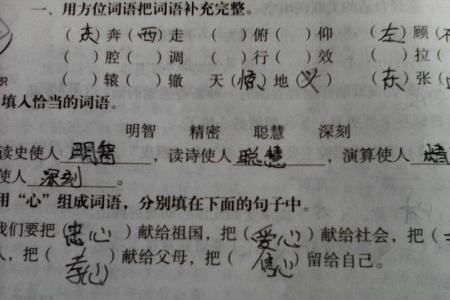 一、用方位词语把词语补充完整。
( 东 ) 奔 ( 西 ) 走 ( ) 俯 ( ) 仰 ( 左 ) 顾
( ) 腔 ( ) 调 ( ) 行 ( ) 效 ( ) 拉 (
( ) 辕 ( ) 辙 天 ( 惊 ) 地 ( 义 ) ( 东 ) 张
填入恰当的词语。
明智 精密 聪慧 深刻
读史使人 明智 , 读诗使人 聪慧 , 演算使人 精
使人 深刻 。
用“心”组成词语,分别填在下面的句子中。
我们要把 ( 忠心 ) 献给祖国,把 ( 爱心 ) 献给社会,把 (
人,把 ( 孝心 ) 献给父母,把 ( 信心 ) 留给自己。